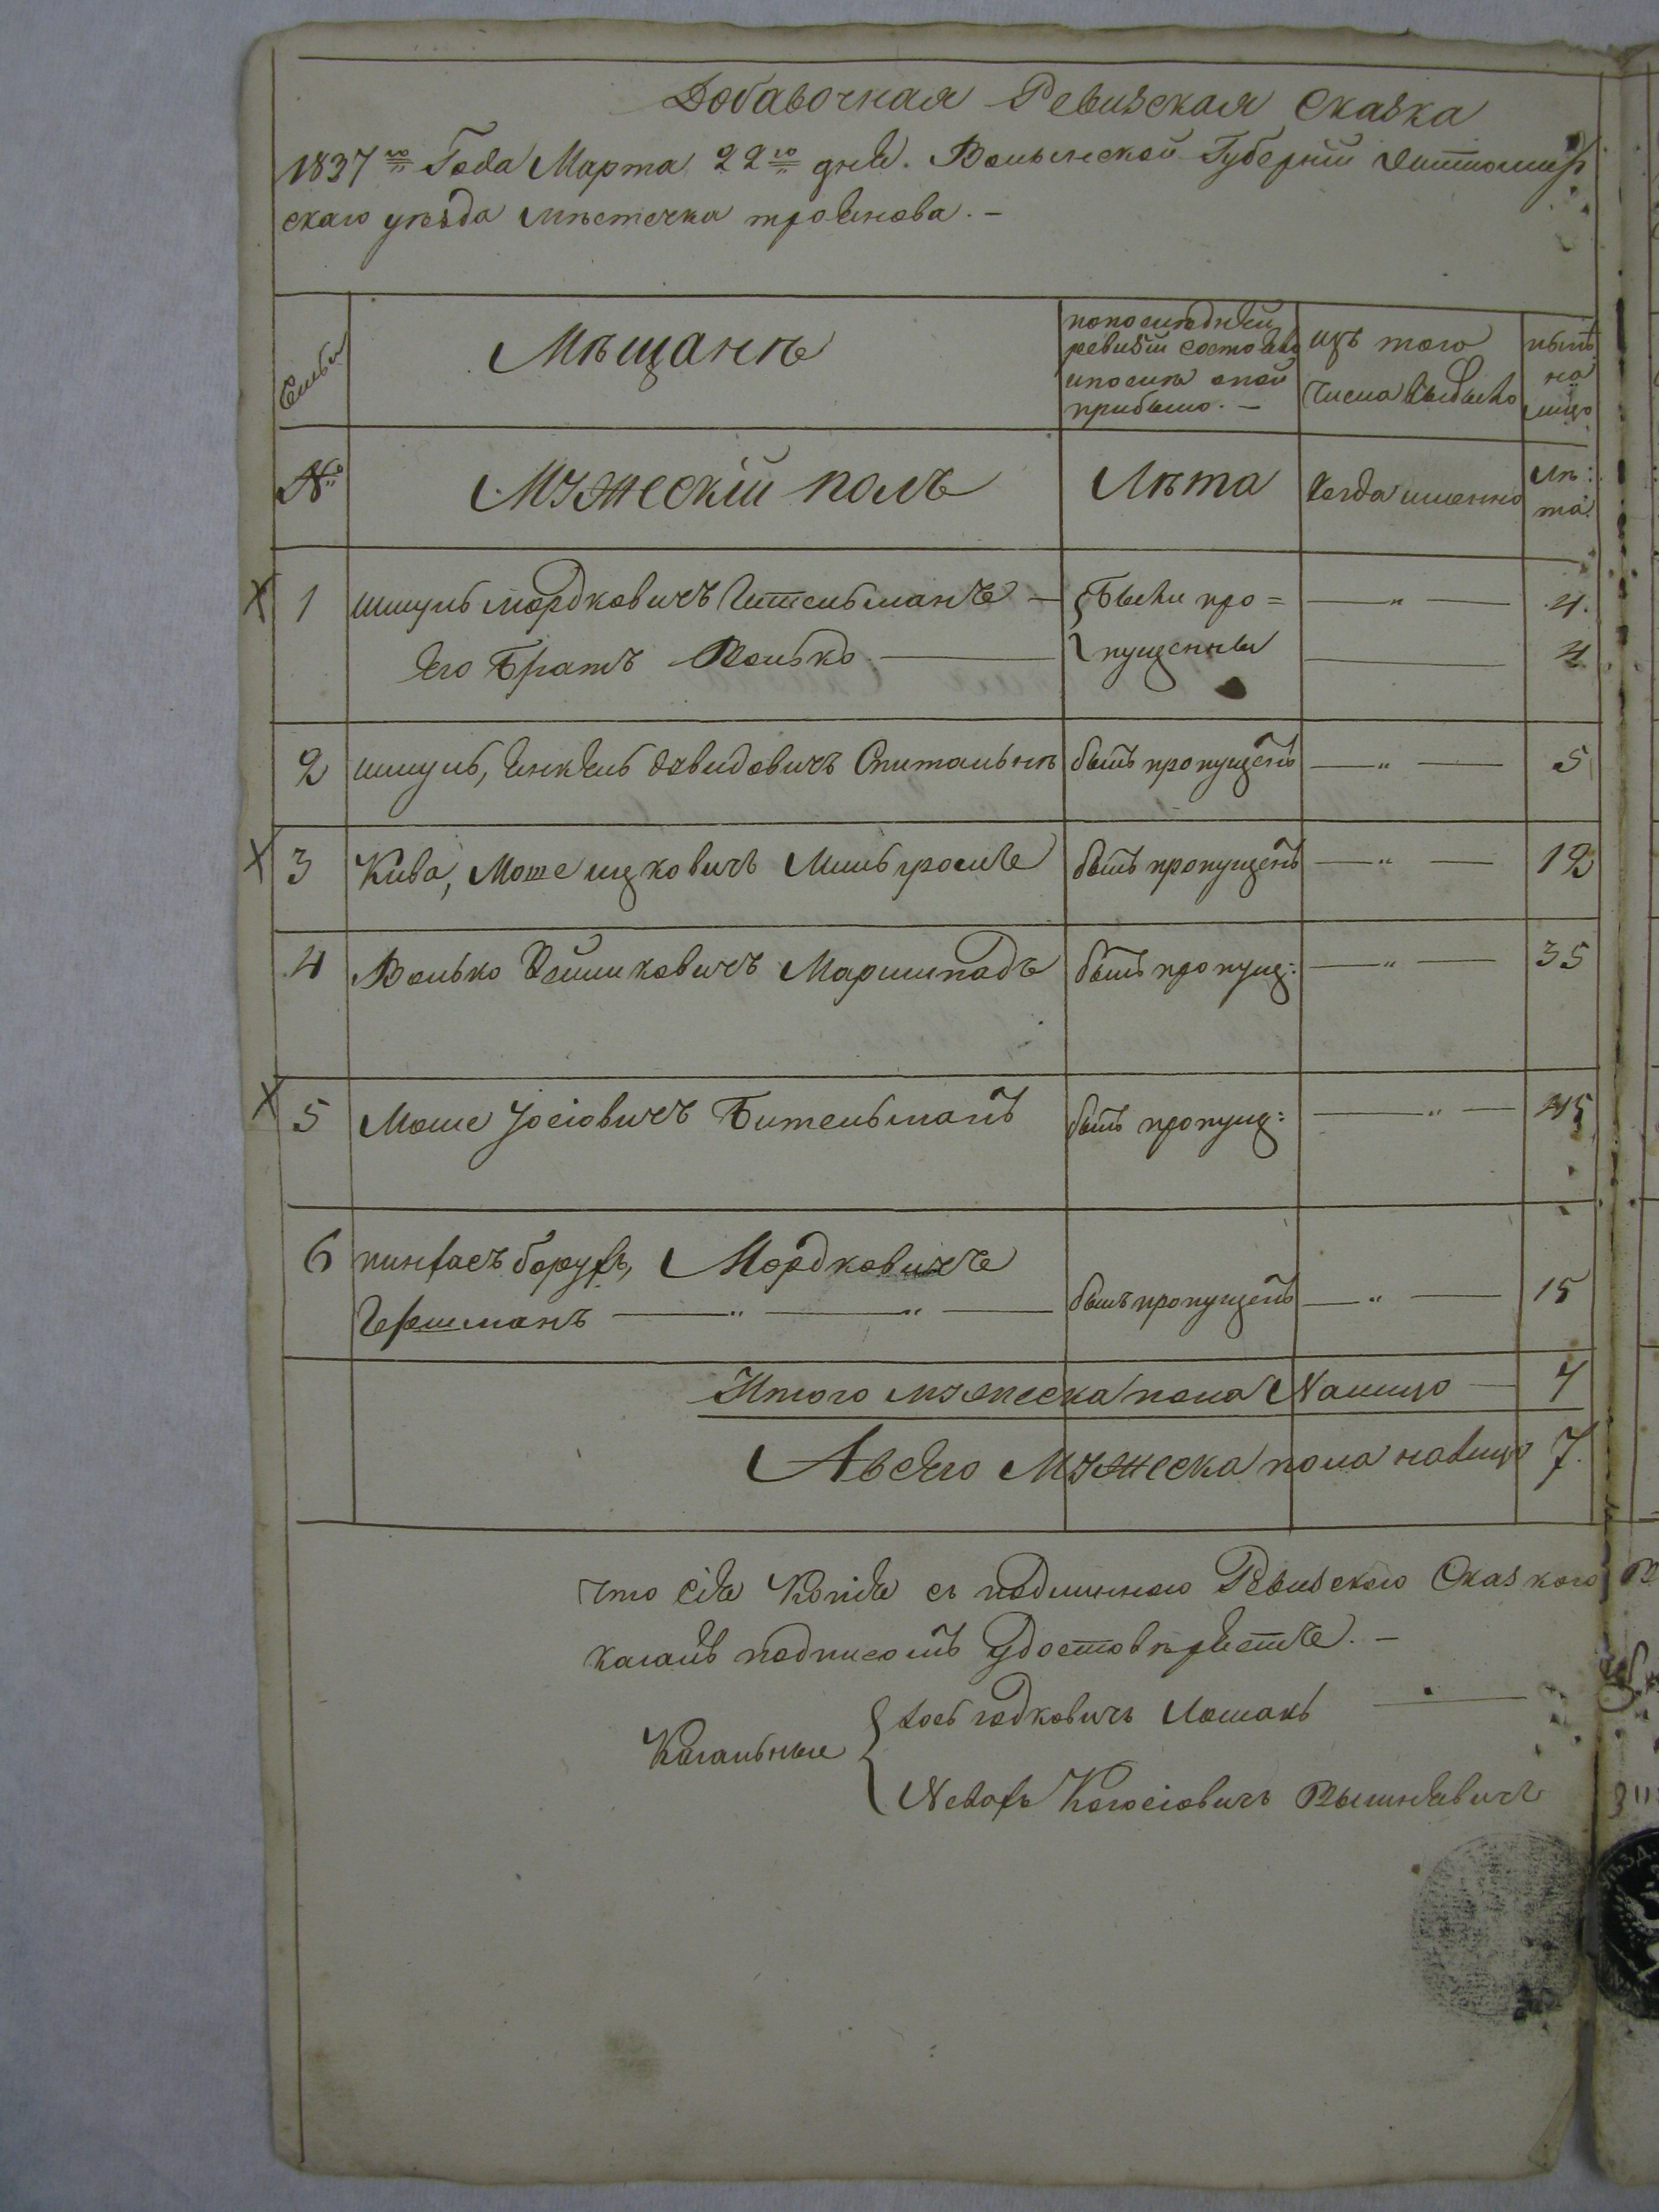 Добавочная Ревизская Сказка
1837го Года Марта 22го дня. Волынской Губерніи Житомир
скаго уѣзда мѣстечка троянова. –
Семьи
Мѣщанѣ
попослѣдней
ревизіи состояло
ипослѣ оной
прибыло. –
изъ того
числа выбыло
нынѣ
на
лицо
№
Мужескій полъ
Лѣта
когда именно
лѣ:
та
1 шмуль мордковичъ Гительманъ – Были про= —„— 4.
его братъ Волько — пущенны — 4
2 шмуль, янкель давидовичъ Спитальнѣ былъ пропущенъ —„— 5
3 Кива, Моше ицковичъ Мильгромъ былъ пропущенъ —„— 12
4 Волько Ицшковичъ Маришпадъ былъ пропущ: —„— 35
5 Моше Іосіовичъ Бительманъ былъ пропущ: —„— 45
6 пинхасъ борухъ, Мордковичъ
Гершманъ —„—„— былъ пропущенъ —„— 15
Итого мужеска пола Налицо — 7
Авсего Мужеска пола налицо 7.
что сія Копія съ подлинного Ревизского Сказкого
кагалъ подписомъ удостовѣряетъ. –
Кагальные
Іось годковичъ Лошакъ —
Невахъ Когосіовичъ Вышневичъ